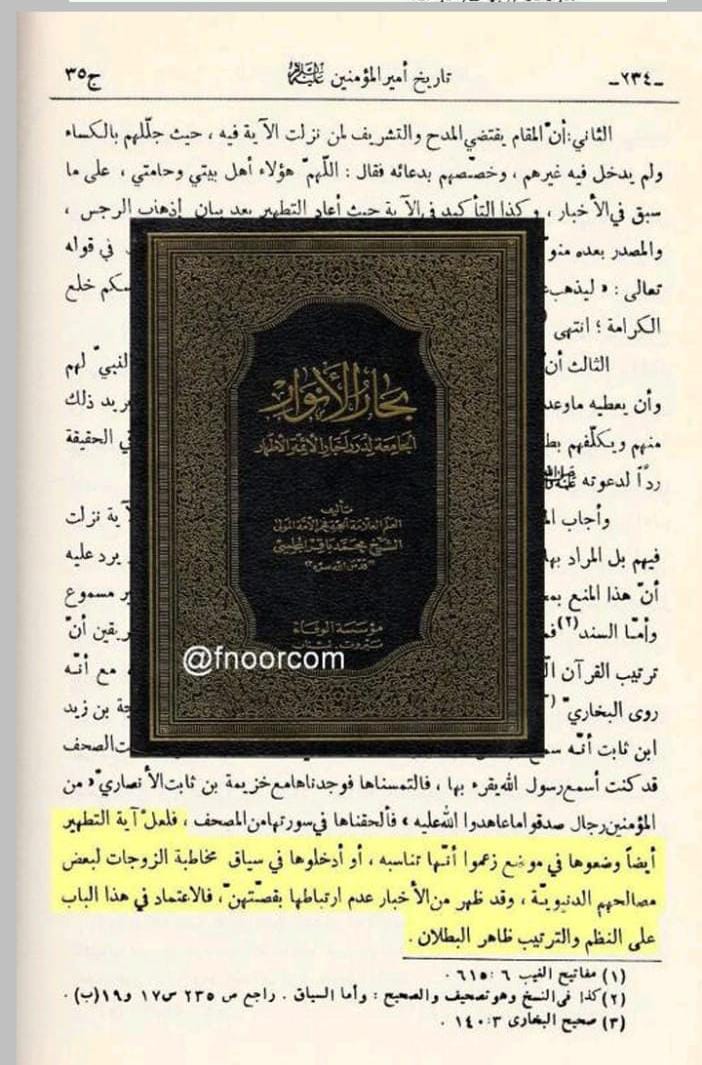 ـ٢٣٤ـ
تاريخ أمير المؤمنين عليه السلام
ج٣٥
الثاني : أنّ المقام يقتضي المدح والتشريف لمن نزلت الآية فيه ، حيث جلّلهم بالكساء
ولم يدخل فيه غيرهم ، وخصّصهم بدعائه فقال : اللّهمّ هؤلاء أهل بيتي وحامتي ، على ما
سبق في الأخبار ، وكذا التأكيد في الآية حيث أعاد التطهير بعد بيان إذهاب الرجس ،
والمصدر بعده في قوله
تعالى : « ليذهب خلع
الكرامة ؛ انتهى
الثالث أن لهم
وأن يعطيه ذلك
منهم ويكلّفهم الحقيقة
ردّاً لدعوته
وأجاب نزلت
فيهم بل المراد يرد عليه
أنّ هذا المنع مسموع
وأمّا السند (٢) أنّ
ترتيب القرآن مع أنّه
روى البخاريّ بن زيد
ابن ثابت أنّه الصحف
قد كنت أسمع رسول الله يقرء بها ، فالتمسناها فوجدناها مع خزيمة بن ثابت الأنصاريّ « من
المؤمنين رجال صدقوا ما عاهدوا الله عليه » فألحقناها في سورتها من المصحف ، فلعلّ آية التطهير
أيضاً وضعوها في موضع زعموا أنّها تناسبه ، أو أدخلوها في سياق مخاطبة الزوجات لبعض
مصالحهم الدنيويّة ، وقد ظهر من الأخبار عدم ارتباطها بقصّتهنّ ، فالاعتماد في هذا الباب
على النظم والترتيب ظاهر البطلان .
(١) مفاتيح الغيب ٦ : ٦١٥ .
(٢) كذا في النسخ وهو تصحيف والصحيح : وأما السياق . راجع ص ٢٣٥ س ١٧ و ١٩ (ب) .
(٣) صحيح البخارى ٣ : ١٤٠ .
بحار الأنوار
الجامعة لدرر أخبار الأئمة الأطهار
تأليف
العلم العلامة الحجة فخر الأمة المولى
الشيخ محمد باقر المجلسي
"قدس الله سره"
مؤسسة الوفاء
@fnoorcom